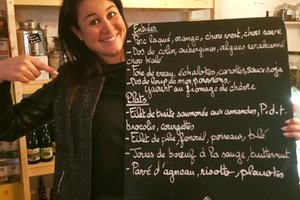 Entrées
- Porc laqué, orange, chou vert, chou rave
- Dos de colin, aubergines, algues wakamé
chou kale
- Joue de veau, échalottes, carottes, sauce soja
- Dos de loup de mer, 
Yaourt au fromage de chèvre
Plats
- Filet de truite saumonée aux amandes, P.d.t.
brocolis, courgettes
- Filet de , fenouil, poireau, blé
- Joues de boeuf à la sauge, butternut
- Pavé d'agneau, risotto, pleurotes